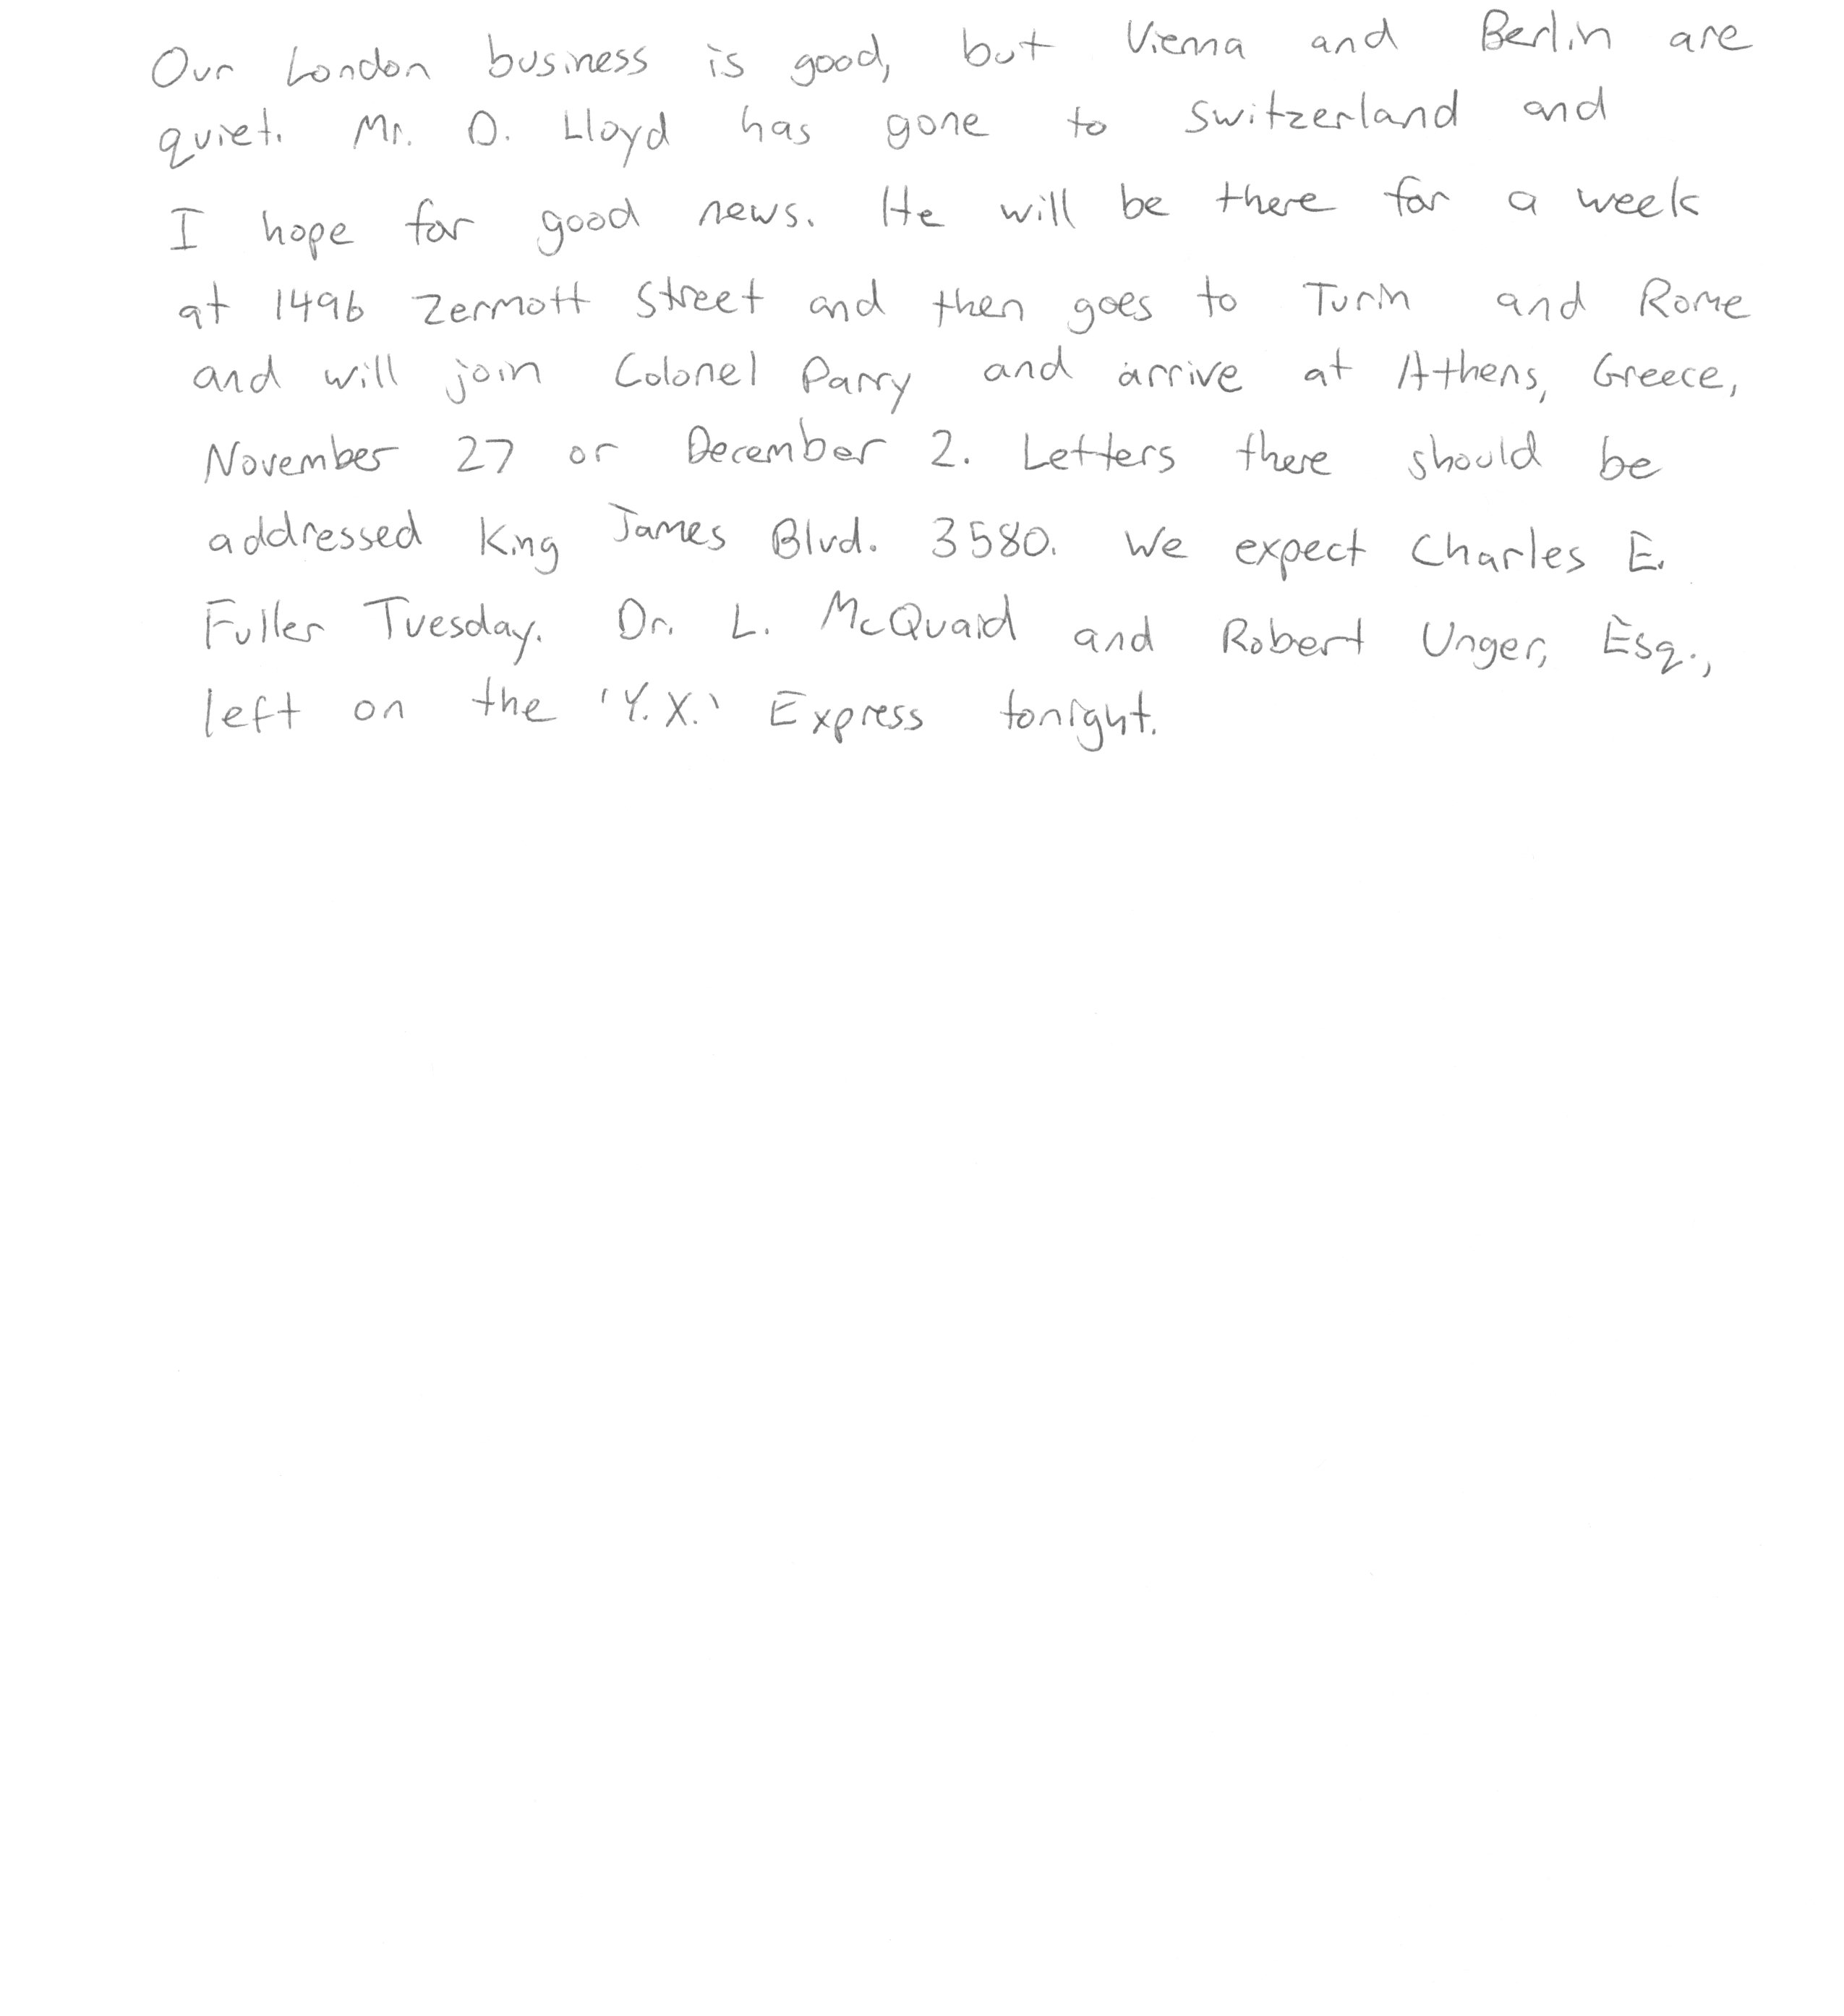 Our London business is good, but Vienna and Berlin are
quiet. Mr. D. Lloyd has gone to Switzerland and
I hope for good news. He will be there for a week
at 1496 Zermott Street and then goes to Turin and Rome
and will join Colonel Parry and arrive at Athens, Greece,
November 27 or December 2. Letters there should be
addressed King James Blvd. 3580. We expect Charles E.
Fuller Tuesday. Dr. L. McQuaid and Robert Unger, Esq.,
left on the 'Y.X.' Express tonight.